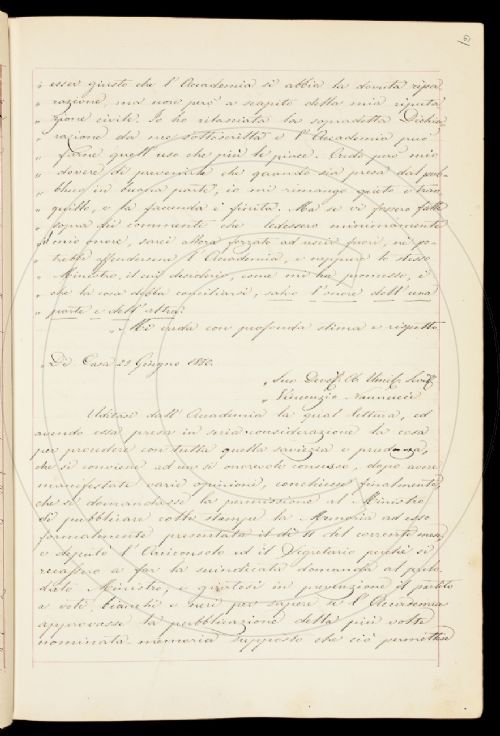 „ esser giusto che l'Accademia si abbia la dovuta ripa
„ razione, ma non però a scapito della mia riputa
„ zione civile. Io ho rilasciata la sopradetta Dichia
„ razione da me sottoscritta e l'Accademia può
„ farne quell'uso che più le piace. Credo però mio
„ dovere di prevenirla che quando sia presa dal pub-
„ blico in buona parte, io mi rimango quieto e tran
„ quillo, e la faccenda è finita. Ma se vi fossero fatti
„ sopra dei commenti che ledessero minimamente
„ il mio onore, sarei allora forzato ad uscir fuori, nè po
„ trebbe offendersene l'Accademia, e neppure lo stesso
„ Ministro, il cui desiderio, come mi ha promesso, è
„ che la cosa debba conciliarsi, salvo l'onore dell'una
„ parte e dell'altra.
„ Mi creda con profonda stima e rispetto
„ Di Casa 29 Giugno
„ Suo
„ Vincenzio Nannucci
Uditasi dall'Accademia la qual lettura, ed
avendo essa presa in seria considerazione la cosa
per procedere con tutta quella saviezza e prudenza,
che si conviene ad un sì onorevole consesso, dopo avere
manifestate varie opinioni, conchiuse finalmente,
che si domandasse la permissione al Ministro
di pubblicare colle stampe la Memoria ad esso
formalmente presentata il dì 11 del corrente mese,
e deputò l'Arciconsolo ed il Segretario perchè si
recassero a far la suindicata domanda al prelo
dato Ministro, e giratosi in prevenzione il partito
a voti bianchi e neri per sapere se l'Accademia
approvasse la pubblicazione della più volte
nominata memoria supposto che ciò permettesse